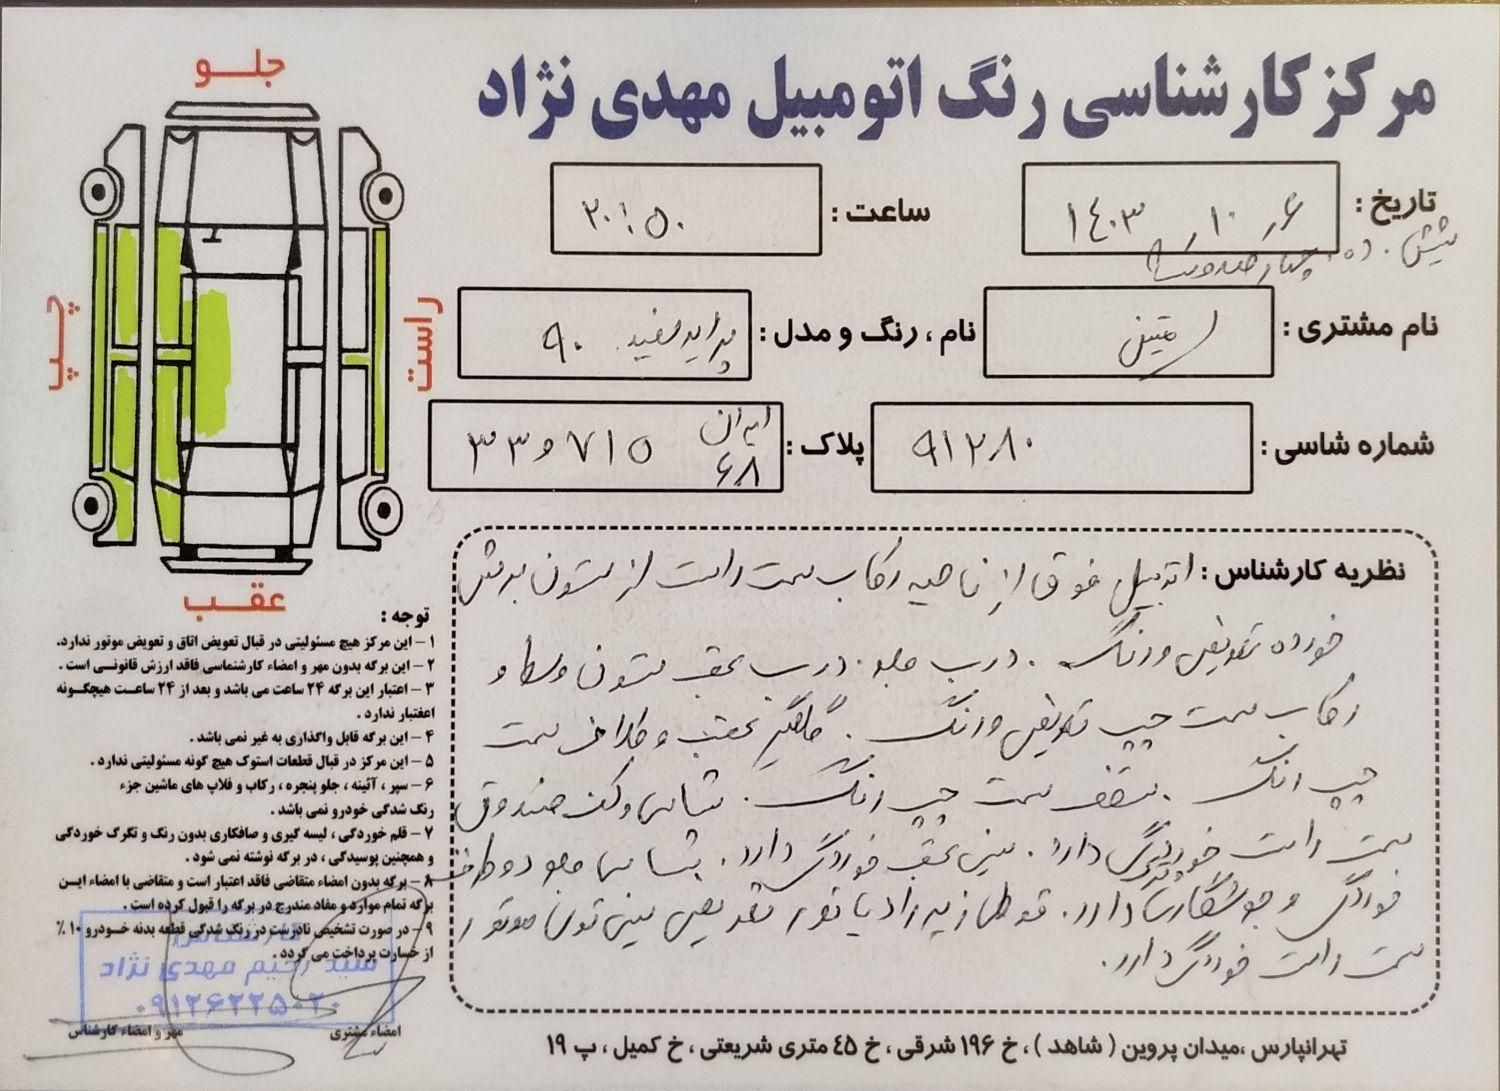 مرکز کارشناسی رنگ اتومبیل مهدی نژاد
تاریخ : ۱۴۰۳ ر ۱۰ ر ۶
ساعت : ۲۰:۵۰
شیش . ده . چهارصدوسه
نام مشتری :
نام ، رنگ و مدل : پراید سفید ۹۰
شماره شاسی : ۹۱۲۸۰
پلاک : ایران ۶۸ ۳۳ و ۷۱۵
جلو
راست
چپ
عقب
نظریه کارشناس : اتومبیل فوق از ناحیه رکاب سمت راست از ستون برش
خورده تعویض و رنگ . درب جلو . درب عقب ستون وسط و
رکاب سمت چپ تعویض و رنگ . گلگیر عقب و سمت
چپ رنگ . سقف سمت چپ رنگ . شاسی و کف صندوق
سمت راست خوردگی دارد . سینی عقب خوردگی دارد . شاسی جلو دو طرف
خوردگی و جوشکاری دارد . زیر رادیاتور تعویض سینی ستون موتور
سمت راست خوردگی دارد .
توجه :
۱ – این مرکز هیچ مسئولیتی در قبال تعویض اتاق و تعویض موتور ندارد.
۲ – این برگه بدون مهر و امضاء کارشناسی فاقد ارزش قانونـی است .
۳ – اعتبار این برگه ۲۴ ساعت می باشد و بعد از ۲۴ ساعت هیچگـونه
اعتبار ندارد .
۴ – این برگه قابل واگذاری به غیر نمی باشد .
۵ – این مرکز در قبال قطعات استوک هیچ گونه مسئولیتی ندارد .
۶ – سپر ، آئینه ، جلو پنجره ، رکاب و فلاپ های ماشین جزء
رنگ شدگی خودرو نمی باشد .
۷ – قلم خوردگی ، لیسه گیری و صافکاری بدون رنگ و تگرگ خوردگی
و همچنین پوسیدگی ، در برگه نوشته نمی شود .
۸ – برگه بدون امضاء متقاضی فاقد اعتبار است و متقاضی با امضاء ایـن
برگه تمام موارد و مفاد مندرج در برگه را قبول کرده است .
۹ – در صورت تشخیص نادرست در رنگ شدگی قطعه بدنه خـودرو ۱۰ ٪
از خسارت پرداخت می گردد .
کارشناس
سید رحیم مهدی نژاد
۰۹۱۲۶۲۲۵۰۲۰
امضاء مشتری
مهر و امضاء کارشناس
تهرانپارس ،میدان پروین ( شاهد )، خ ۱۹۶ شرقی ، خ ۴۵ متری شریعتی ، خ کمیل ، پ ۱۹